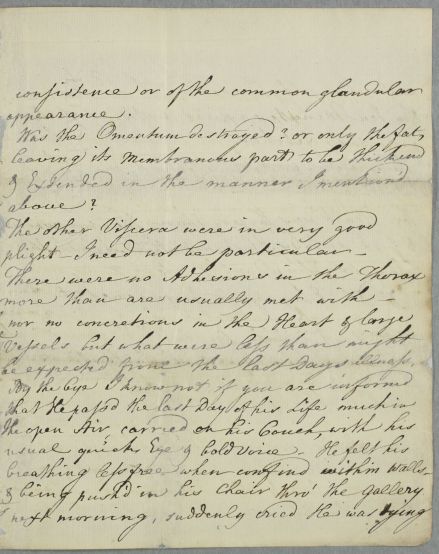 consistence or of the common glandular
appearance.
Was the Omentum destroyed? or only the fat,
leaving its Membranous part to be thicken'd
& Extended in the manner I mention'd
above?
The other Viscera were in very good
plight – I need not be particular –
There were no Adhesions in the Thorax
more than are usually met with –
nor no concretions in the Heart & large
Vessels but what were less than might
be expected from the last Days illness.
By the bye I know not if you are inform'd
that He pass'd the last Day of his Life much in
the open Air carried on his Couch, with his
usual quick Eye & bold Voice – He felt his
breathing less free when confin'd within walls –
& being push'd in his Chair thro' the Gallery
next morning, suddenly cried He was dying